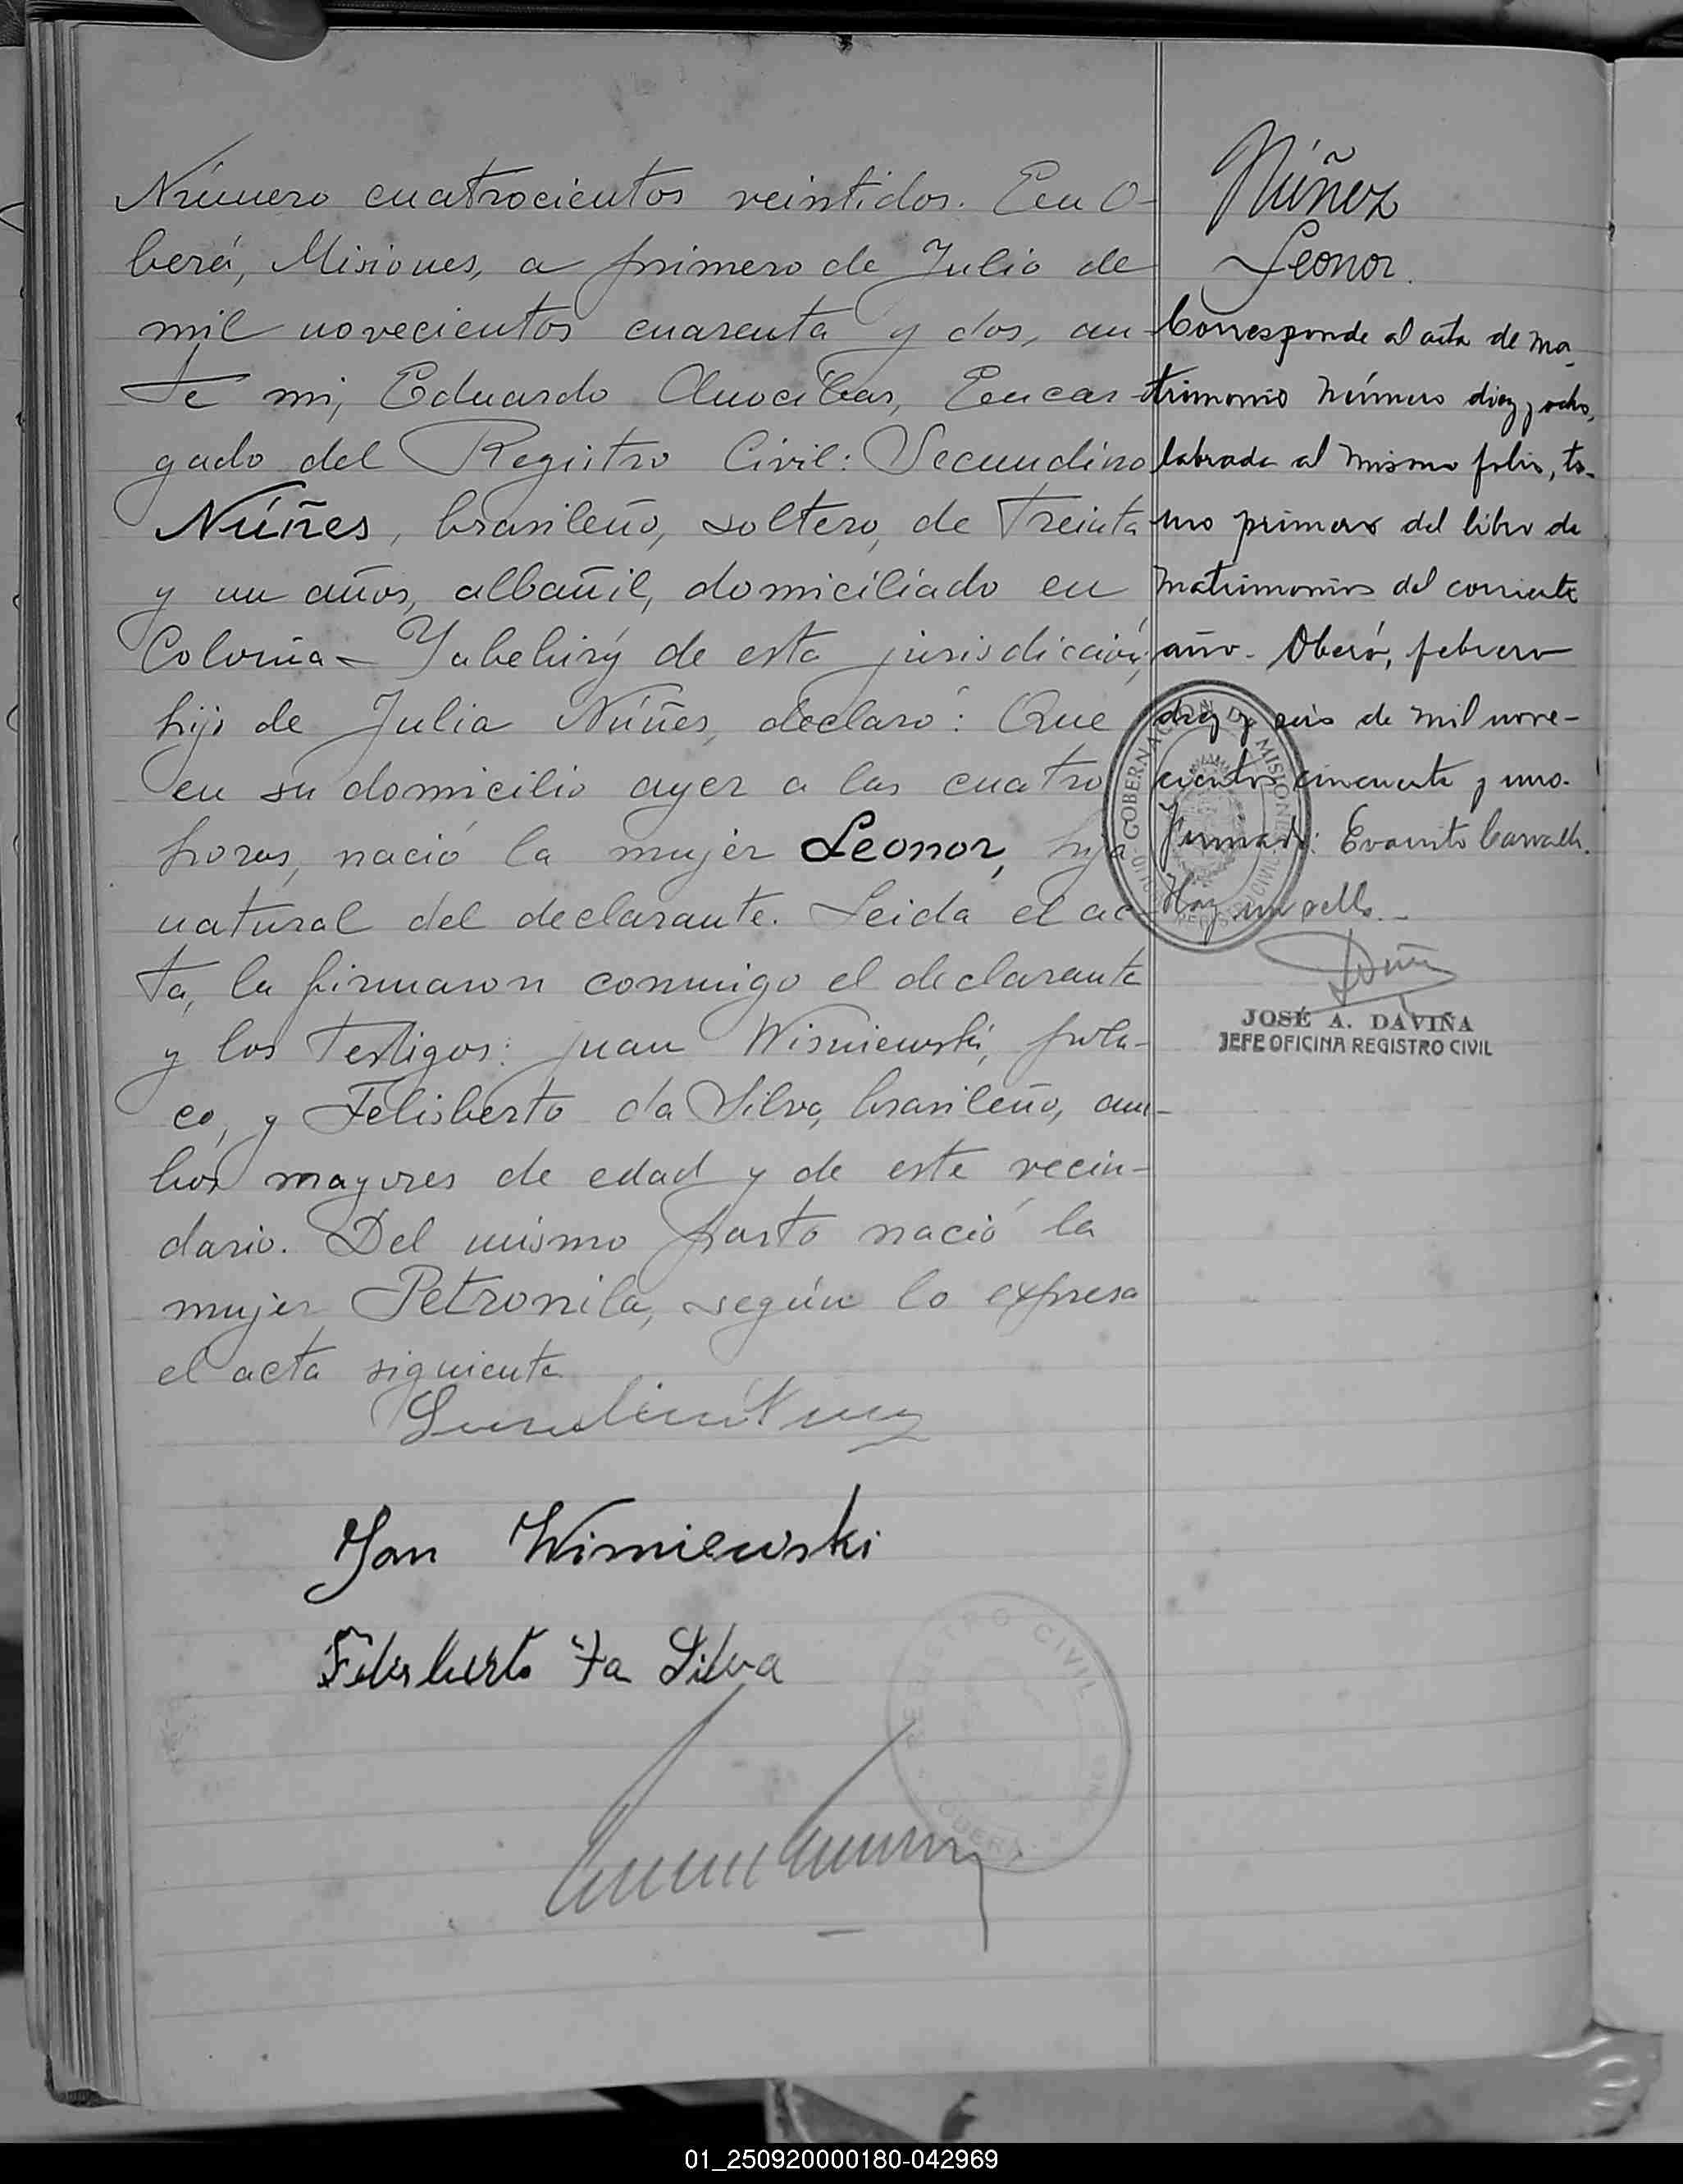 Número cuatrocientos veintidos. En O-
berá, Misiones, a primero de Julio de
mil novecientos cuarenta y dos, an-
te mi, Eduardo Anocíbar, Encar-
gado del Registro Civil: Secundino
Núñes, brasileño, soltero, de treinta
y un años, albañil, domiciliado en
Colonia Yabebirý de esta jurisdicción,
hijo de Julia Núñes, declaró: Que
en su domicilio ayer a las cuatro
horas, nació la mujer Leonor, hija
natural del declarante. Leida el ac-
ta, la firmaron conmigo el declarante
y los testigos: Juan Wisniewski, pola-
co, y Felisberto da Silva, brasileño, am-
bos mayores de edad y de este vecin-
dario. Del mismo parto nació la
mujer Petronila, según lo expresa
el acta siguiente
Jan Wisniewski
Felisberto Da Silva
REGISTRO CIVIL
OBERÁ
Núñez
Leonor.
Corresponde al acta de ma-
trimonio número diez y ocho,
labrada al mismo folio, to-
mo primero del libro de
matrimonios del corriente
año. Oberá, febrero
diez y seis de mil nove-
cientos cincuenta y uno.
Firmado: Evaristo Carvalh.
Hay un sello.-
GOBERNACION DE MISIONES
REGISTRO CIVIL
JOSÉ A. DAVIÑA
JEFE OFICINA REGISTRO CIVIL
01_250920000180-042969